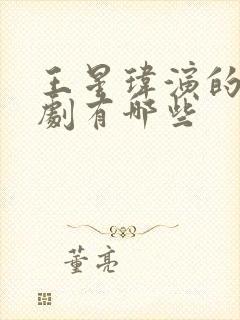 王星瑋演的
劇有哪些
董亮